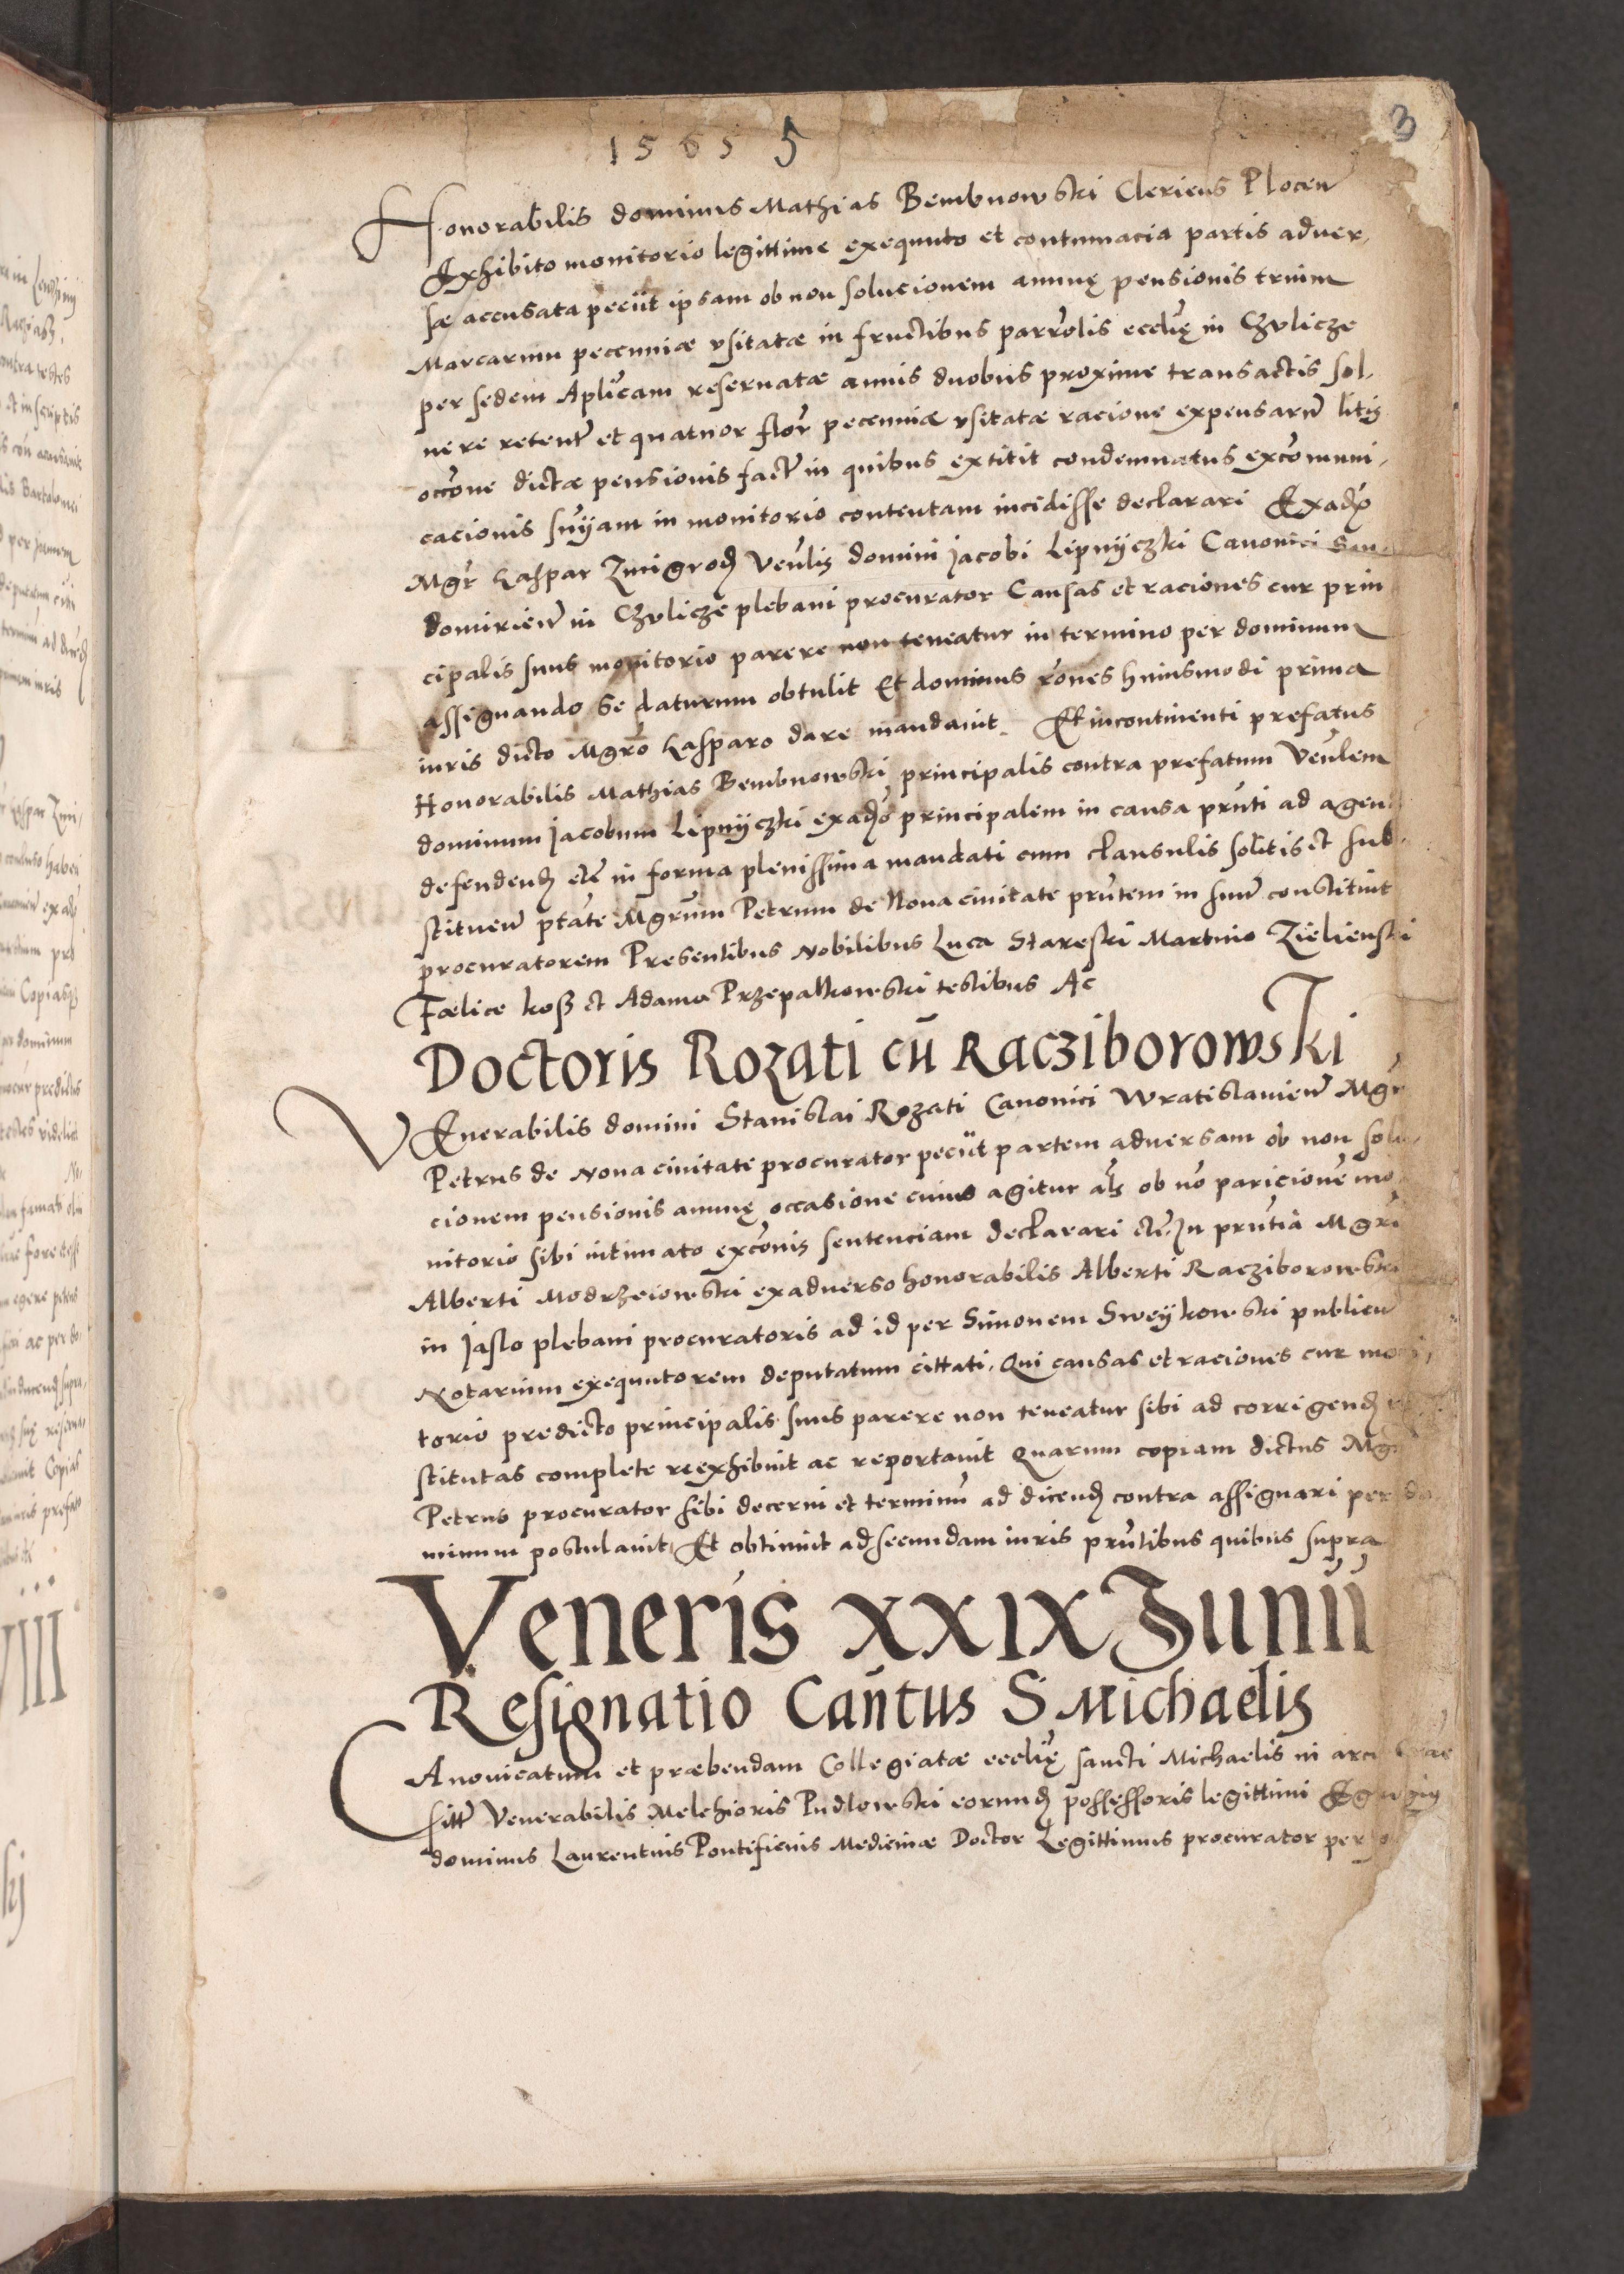 1565 5
3
Honorabilis dominus Mathias Bembnowski Clericus Plocen̄
Exhibito monitorio legittime exequuto et contumacia partis adver-
sæ accusata peciit ipsam ob non solucionem annuę pensionis trium
Marcarum pecunniæ vsitatæ in fructibus parrolis ecclię in Czvlicze
per sedem Aplicam reseruatæ annis duobus proxime transactis sol-
uere retent̄ et quatuor flor̄ pecuniæ vsitatæ racione expensarū litis
occōne dictæ pensionis fact̄ in quibus extitit condemnatus excōmuni-
cacionis sniam in monitorio contentam incidisse declarari Exadỏ
Mgr̄ Caspar Zmigrod̨ Venlis domini Jacobi Lipnyczki Canonici San-
domirien̄ in Czvlicze plebani procurator Causas et raciones cur prin
cipalis suus monitorio parere non teneatur in termino per dominum
assignando se daturum obtulit Et dominus rōnes huiusmodi prima
iuris dicto Mgrō Casparo dare mandauit. Et incontinenti prefatus
Honorabilis Mathias Bembnowski principalis contra prefatum Venlem
dominum Jacobum Lipnyczki exadỏ principalem in causa prn̄ti ad agend̨
defendend̨ etc̄ in forma plenissima mandati cum clausulis solitis et sub-
stituen̄ ptāte Mgrūm Petrum de Noua ciuitate prn̄tem in suū constituit
procuratorem Presentibus Nobilibus Luca Stareski Martino Zielienski
Fœlice koß et Adamo Przepalkowski testibus Ac
Doctoris Rozati cū Racziborowski
VEnerabilis domini Stanislai Rozati Canonici Wratislauien̄ Mgr̄
Petrus de Noua ciuitate procurator peciit partem aduersam ob non solu-
cionem pensionis annuę occasione cuius agitur als ob nō paricionē mo
nitorio sibi intimato excōnis sentenciam declarari etc̄. In prn̄tia Mgri
Alberti Modrzeiowski exaduerso honorabilis Alberti Racziborowski
in Jaslo plebani procuratoris ad id per Simonem Sweykowski publicū
Notarium exequutorem deputatum cittati. Qui causas et raciones cur moni
torio predicto principalis suus parere non teneatur sibi ad corrigend̨ re
stitutas complete reexhibuit ac reportauit Quarum copiam dictus Mgr
Petrus procurator sibi decerni et terminū ad dicend̨ contra assignari per do
minum postulauit Et obtinuit ad secundam iuris prn̄tibus quibus supra
Veneris XXIX Junii
Resignatio Can̄tus S Michaelis
CAnonicatum et præbendam Collegiatæ ecclię sancti Michaelis in arce Crac
sitt̄ Venerabilis Melchioris Pudlowski eorund̨ possessoris legittimi Egregius
dominus Laurentius Pontificius Medicinæ Doctor Legittimus procurator per